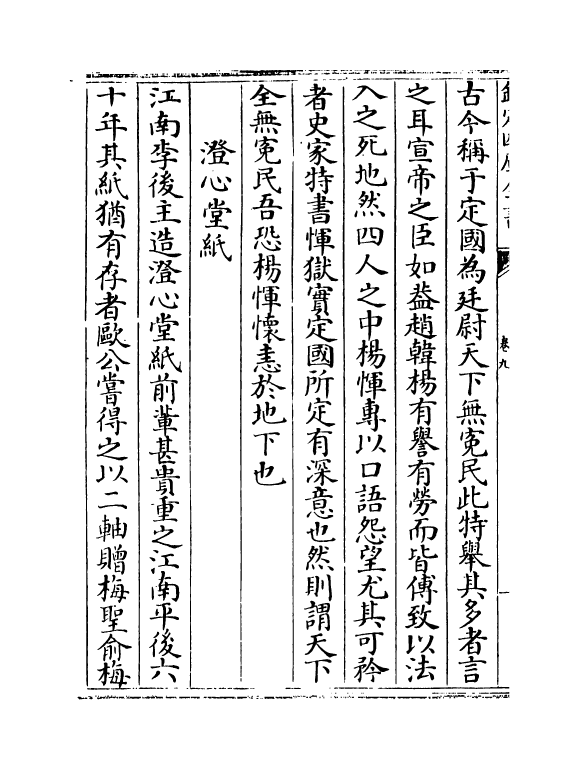 卷九
古今稱于定國為廷尉天下無寃民此特舉其多者言
之耳宣帝之臣如葢趙韓楊有譽有勞而皆傅致以法
入之死地然四人之中楊惲專以口語怨望尤其可矜
者史家特書惲獄實定國所定有深意也然則謂天下
全無寃民吾恐楊惲懷恚於地下也
澄心堂紙
江南李後主造澄心堂紙前軰甚貴重之江南平後六
十年其紙猶有存者歐公嘗得之以二軸贈梅聖俞梅